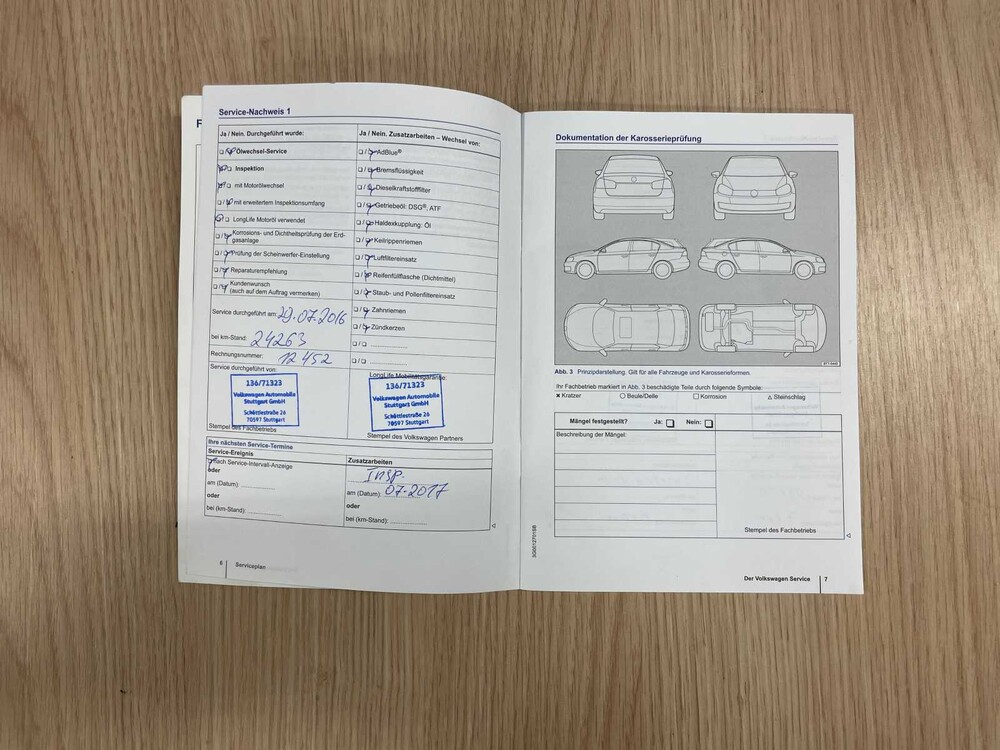 F
Service-Nachweis 1
Ja / Nein. Durchgeführt wurde:
Ölwechsel-Service
Inspektion
mit Motorölwechsel
mit erweitertem Inspektionsumfang
LongLife Motoröl verwendet
Korrosions- und Dichtheitsprüfung der Erd-
gasanlage
Prüfung der Scheinwerfer-Einstellung
Reparaturempfehlung
Kundenwunsch
(auch auf dem Auftrag vermerken)
Service durchgeführt am: 29.07.2016
bei km-Stand: 24263
Rechnungsnummer: 12 452
Service durchgeführt von:
136/71323
Volkswagen Automobile
Stuttgart GmbH
Schöttlestraße 26
70597 Stuttgart
Stempel des Fachbetriebs
Ja / Nein. Zusatzarbeiten – Wechsel von:
AdBlue®
Bremsflüssigkeit
Dieselkraftstofffilter
Getriebeöl: DSG®, ATF
Haldexkupplung: Öl
Keilrippenriemen
Luftfiltereinsatz
Reifenfüllflasche (Dichtmittel)
Staub- und Pollenfiltereinsatz
Zahnriemen
Zündkerzen
LongLife Mobilitätsgarantie:
136/71323
Volkswagen Automobile
Stuttgart GmbH
Schöttlestraße 26
70597 Stuttgart
Stempel des Volkswagen Partners
Ihre nächsten Service-Termine
Service-Ereignis
nach Service-Intervall-Anzeige
oder
am (Datum):
oder
bei (km-Stand):
Zusatzarbeiten
Insp.
am (Datum): 07-2017
oder
bei (km-Stand):
6 Serviceplan
Dokumentation der Karosserieprüfung
Abb. 3 Prinzipdarstellung. Gilt für alle Fahrzeuge und Karosserieformen.
Ihr Fachbetrieb markiert in Abb. 3 beschädigte Teile durch folgende Symbole:
Kratzer Beule/Delle Korrosion Steinschlag
Mängel festgestellt? Ja: Nein:
Beschreibung der Mängel:
Stempel des Fachbetriebs
Der Volkswagen Service 7